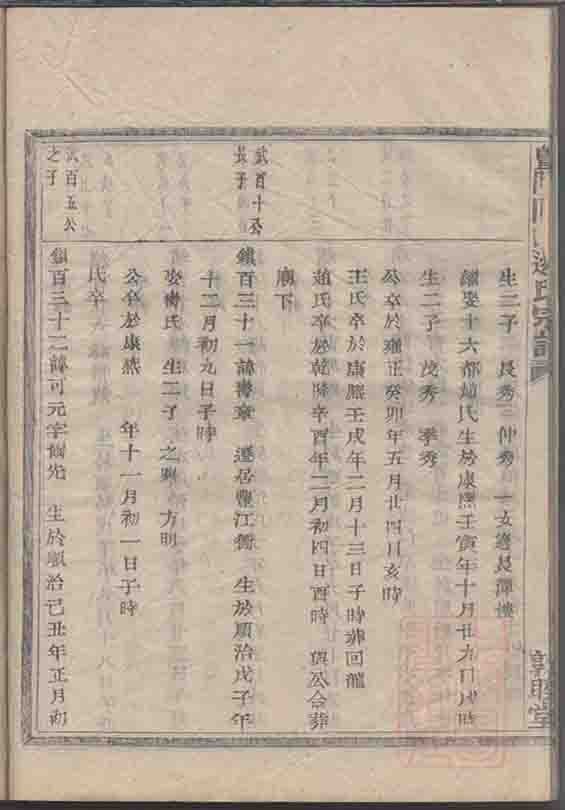 生二子 長秀 仲秀 一女適長潭樓
繼娶十六都趙氏生於康熙壬寅年十月廿九日戌時
生二子 茂秀 季秀
公卒於雍正癸卯年五月廿四日亥時
王氏卒於康熙壬戌年二月十三日子時葬回龍
趙氏卒於乾隆辛酉年二月初四日酉時 與公合葬
廟下
武百十公
長子
鎮百三十一諱壽章 遷居 江衢 生於順治戊子年
十二月初九日子時
娶 氏 生二子 之 方明
公卒於康熙 年十一月初一日子時
氏卒
百五公
之子
鎮百三十二諱可元字 先 生於順治己丑年正月初
氏宗譜
敦睦堂